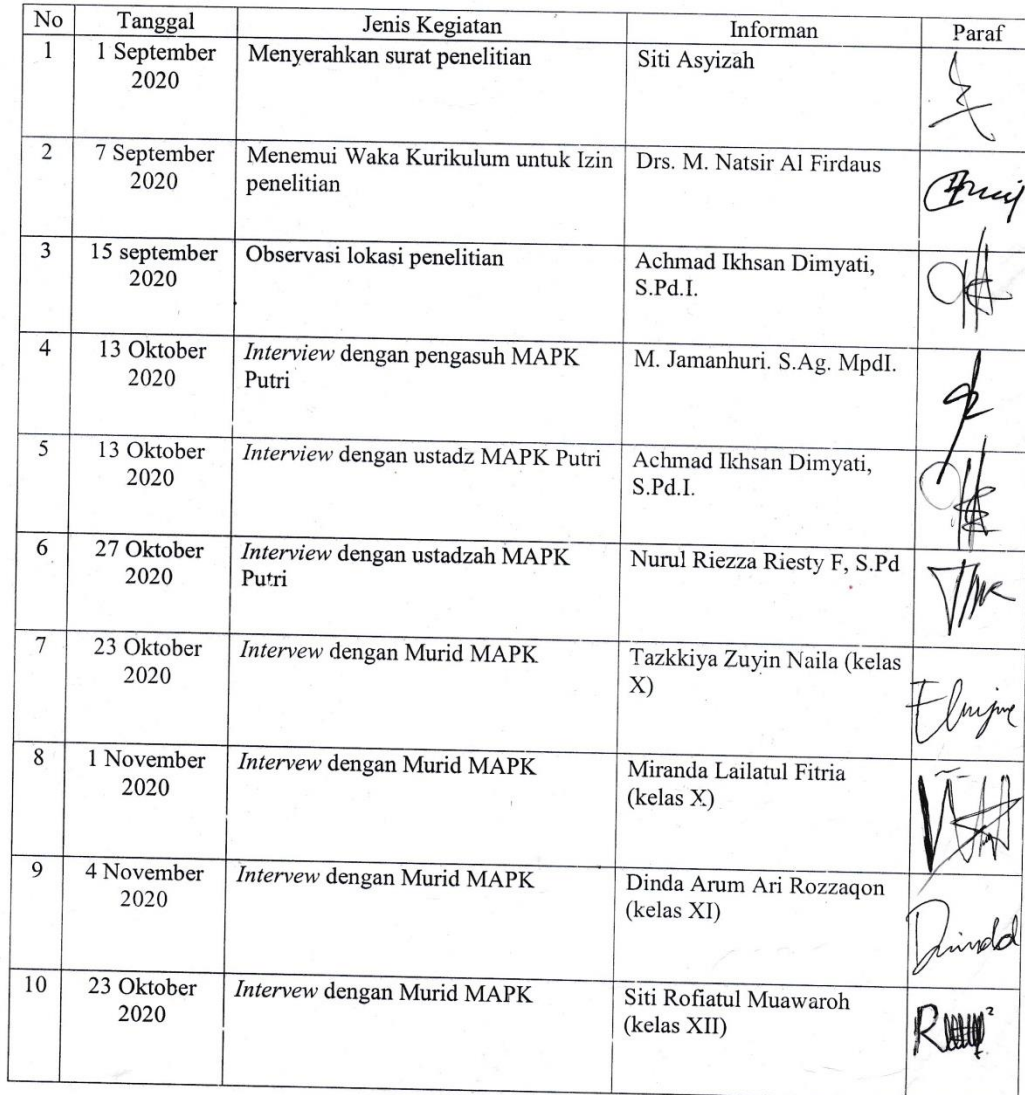 No Tanggal Jenis Kegiatan Informan Paraf
1 1 September Menyerahkan surat penelitian Siti Asyizah
2020
2 7 September Menemui Waka Kurikulum untuk Izin Drs. M. Natsir Al Firdaus
2020 penelitian
3 15 september Observasi lokasi penelitian Achmad Ikhsan Dimyati,
2020 S.Pd.I.
4 13 Oktober Interview dengan pengasuh MAPK M. Jamanhuri. S.Ag. MpdI.
2020 Putri
5 13 Oktober Interview dengan ustadz MAPK Putri Achmad Ikhsan Dimyati,
2020 S.Pd.I.
6 27 Oktober Interview dengan ustadzah MAPK Nurul Riezza Riesty F, S.Pd
2020 Putri
7 23 Oktober Intervew dengan Murid MAPK Tazkkiya Zuyin Naila (kelas
2020 X)
8 1 November Intervew dengan Murid MAPK Miranda Lailatul Fitria
2020 (kelas X)
9 4 November Intervew dengan Murid MAPK Dinda Arum Ari Rozzaqon
2020 (kelas XI)
10 23 Oktober Intervew dengan Murid MAPK Siti Rofiatul Muawaroh
2020 (kelas XII)